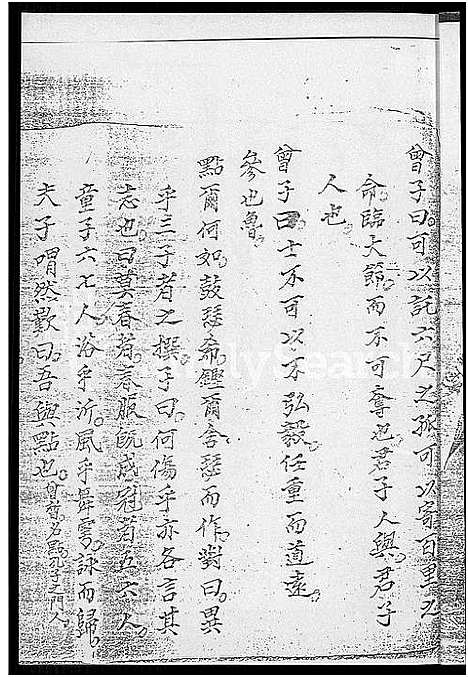 曾子曰可以託六尺之孤可以寄百里之
命臨大節而不可奪也君子人與君子
人也
曾子曰士不可以不弘毅任重而道遠
參也魯
點爾何如鼓瑟希鏗爾舍瑟而作對曰異
乎三子者之撰子曰何傷乎亦各言其
志也曰莫春者春服既成冠者五六人
童子六七人浴乎沂風乎舞雩詠而歸
夫子喟然歎曰吾與點也
孔子之門人